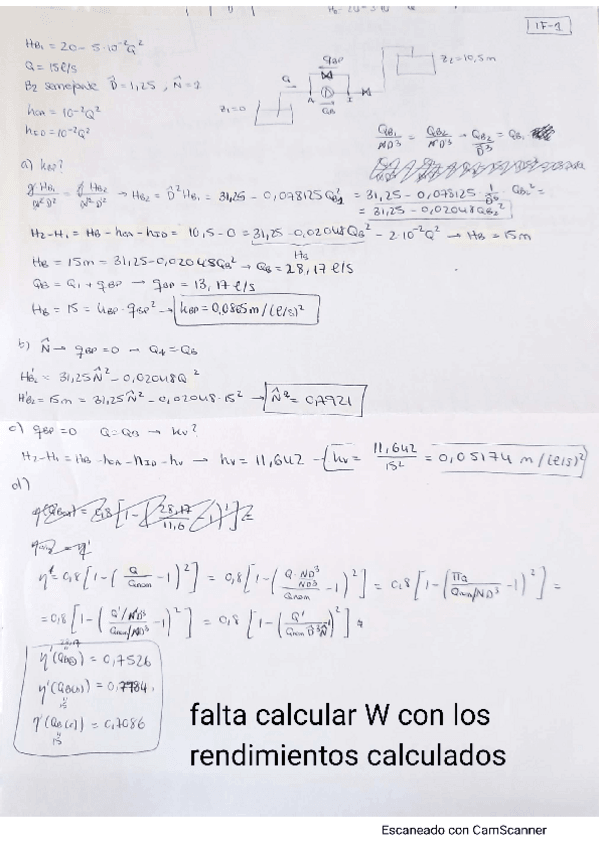 IF-1
HB1 = 20 - 5·10⁻²Q²
Q = 15 l/s
B2 semejante D̂ = 1,25 , N̂ = 1
hCA = 10⁻²Q²
hID = 10⁻²Q²
qBP
Q
A
I
QB
z1 = 0
z2 = 10,5m
QB1/ND³ = QB2/ND³ → QB2/D̂³ = QB1
a) kBP?
gHB1/N²D² = gHB2/N²D² → HB2 = D̂²HB1 = 31,25 - 0,078125 QB1² = 31,25 - 0,078125 · 1/D̂⁶ · QB2² =
= 31,25 - 0,02048QB2²
H2 - H1 = HB - hCA - hID = 10,5 - 0 = 31,25 - 0,02048QB² - 2·10⁻²Q² → HB = 15m
HB
HB = 15m = 31,25 - 0,02048QB² → QB = 28,17 l/s
QB = Q1 + qBP → qBP = 13,17 l/s
HB = 15 = kBP · qBP² → kBP = 0,0865 m/(l/s)²
b) N̂ → qBP = 0 → QA = QB
HB2' = 31,25N̂² - 0,02048Q²
HB2' = 15m = 31,25N̂² - 0,02048·15² → N̂ = 0,7921
c) qBP = 0 Q = QB → kv?
H2 - H1 = HB - hCA - hID - hv → hv = 11,642 → kv = 11,642/15² = 0,05174 m/(l/s)²
d)
η' = 0,8[1 - (Q/Qnom - 1)²] = 0,8[1 - (Q·ND³/ND³/Qnom - 1)²] = 0,8[1 - (ΠQ/Qnom/ND³ - 1)²] =
= 0,8[1 - (Q'/ND³/Qnom/ND³ - 1)²] = 0,8[1 - (Q'/Qnom D̂³N̂ - 1)²]
28,17
η'(QB(a)) = 0,7526
η'(QB(b)) = 0,7784
15
η'(QB(c)) = 0,7086
15
falta calcular W con los
rendimientos calculados
Escaneado con CamScanner